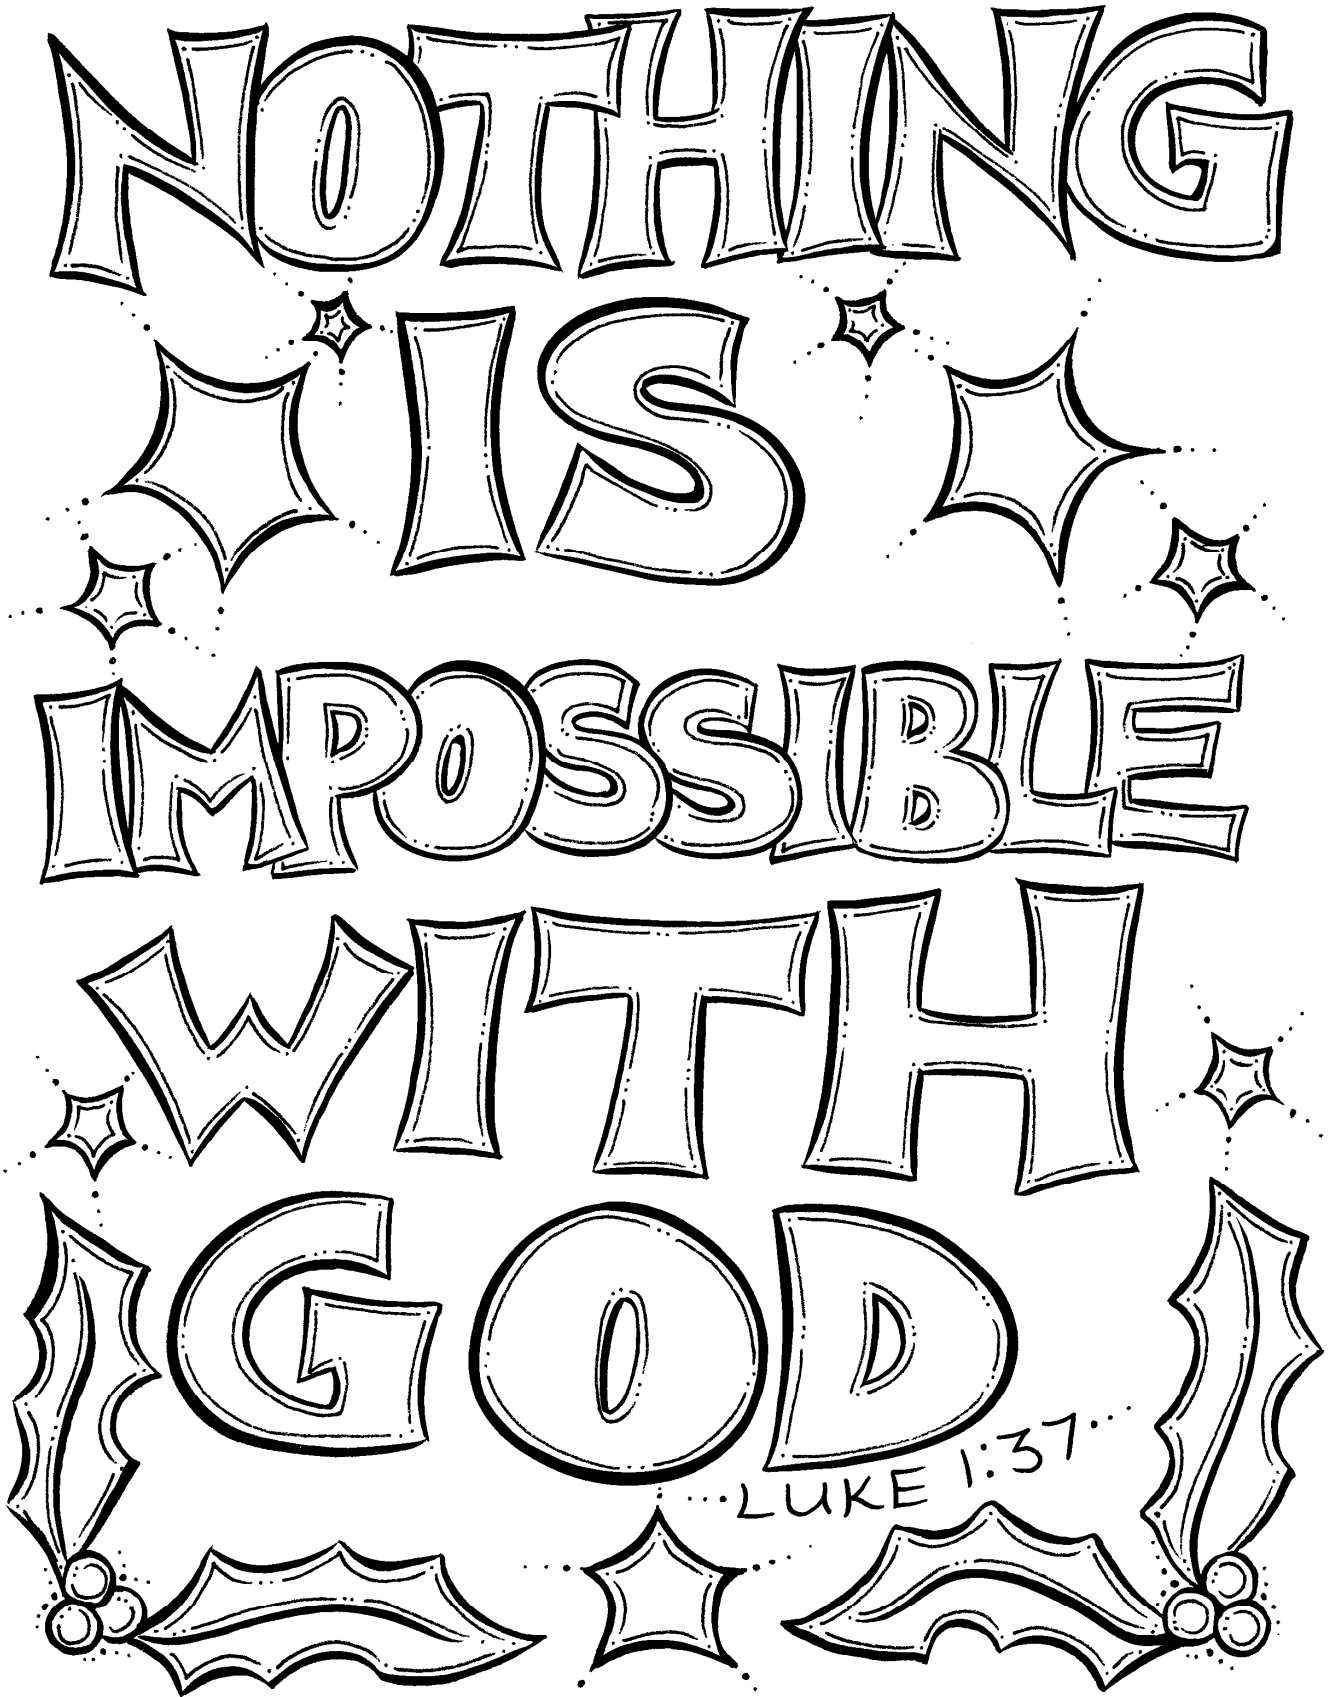 NOTHING
IS
IMPOSSIBLE
WITH
GOD
LUKE 1:37